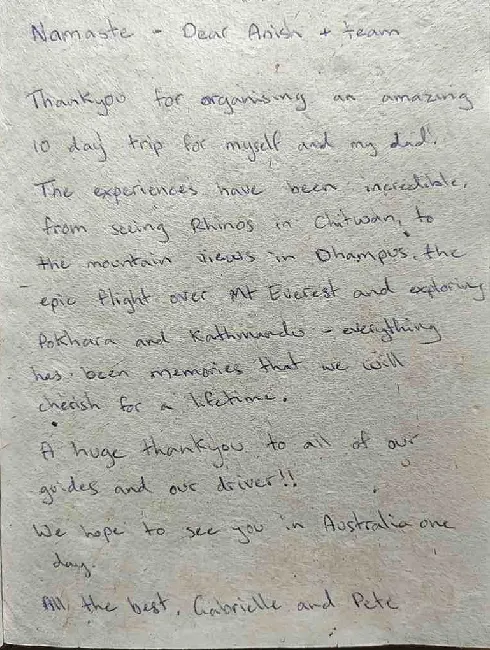 Namaste - Dear Anish + team
Thankyou for organising an amazing
10 day trip for myself and my dad!
The experiences have been incredible,
from seeing Rhinos in Chitwan, to
the mountain views in Dhampus, the
epic flight over Mt Everest and exploring
Pokhara and Kathmandu - everything
has been memories that we will
cherish for a lifetime.
A huge thankyou to all of our
guides and our driver!!
We hope to see you in Australia one
day.
All the best, Gabrielle and Pete